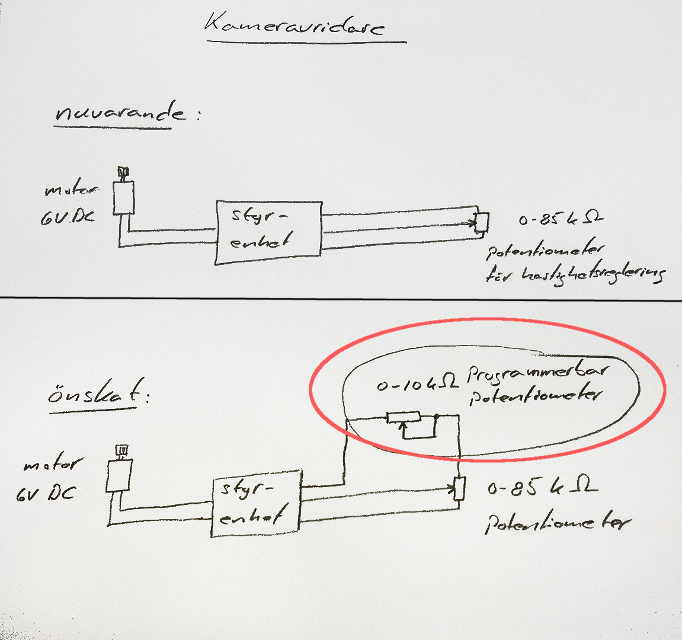 Kameravridare
nuvarande:
motor
6V DC
styr-
enhet
0-85 k Ω
potentiometer
för hastighetsreglering
önskat:
0-10 kΩ Programmerbar
potentiometer
motor
6V DC
styr-
enhet
0-85 k Ω
potentiometer